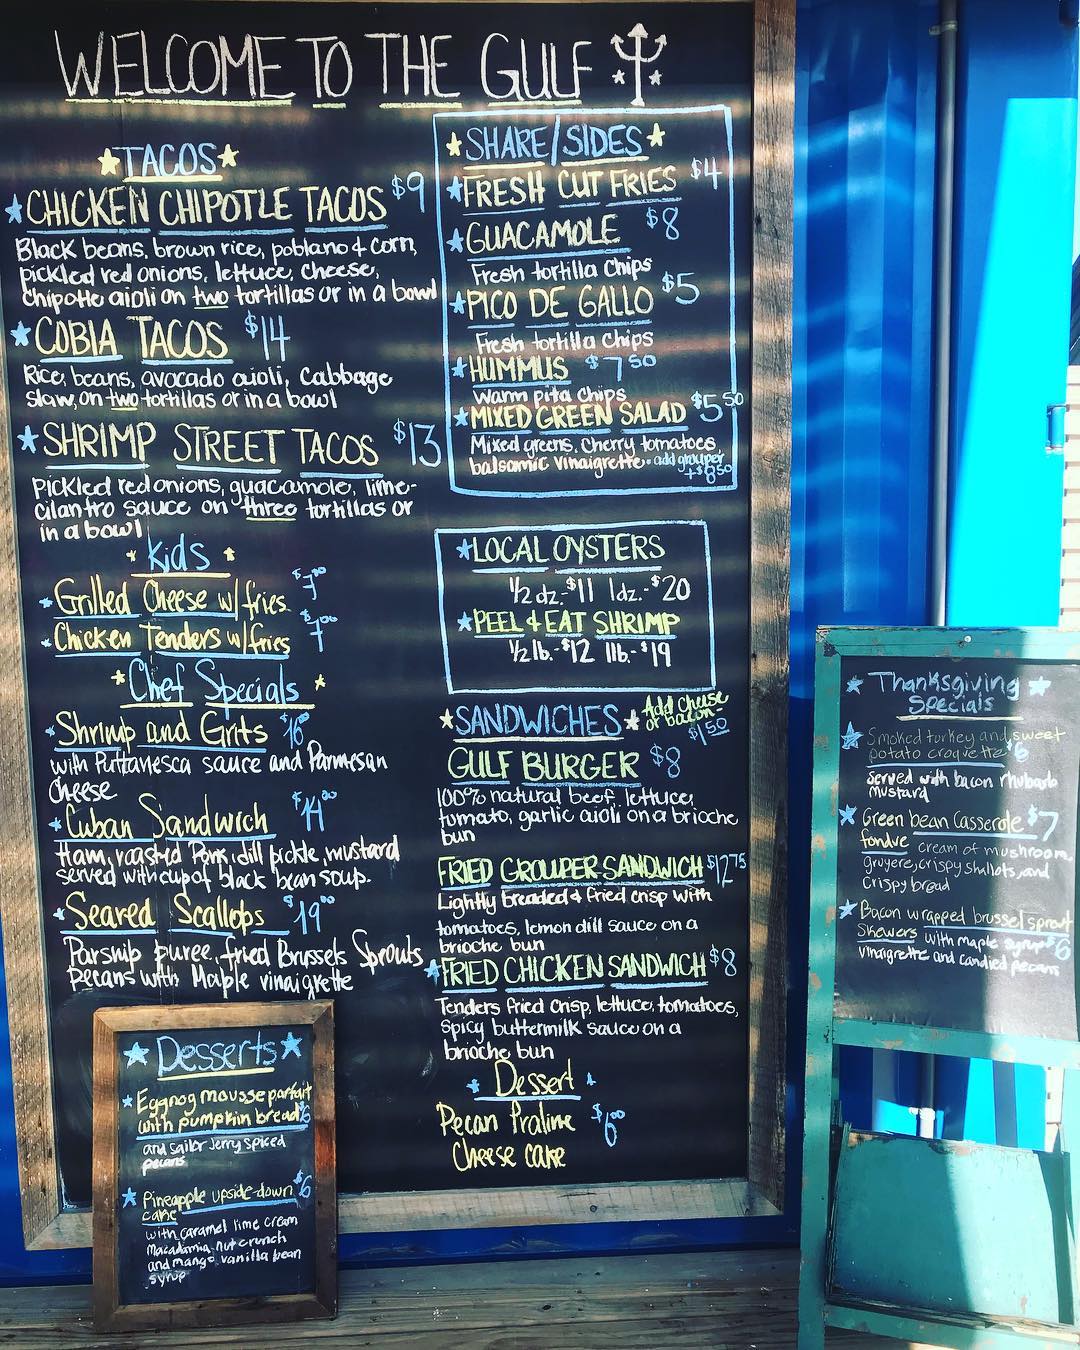 WELCOME TO THE GULF
TACOS
CHICKEN CHIPOTLE TACOS $9
Black beans, brown rice, poblano & corn,
pickled red onions, lettuce, cheese,
chipotle aioli on two tortillas or in a bowl
COBIA TACOS $14
Rice, beans, avocado aioli, Cabbage
slaw, on two tortillas or in a bowl
SHRIMP STREET TACOS $13
Pickled red onions, guacamole, lime-
cilantro sauce on three tortillas or
in a bowl
Kids
Grilled Cheese w/ fries $7.00
Chicken Tenders w/ fries $7.00
Chef Specials
Shrimp and Grits $16.00
with Puttanesca sauce and Parmesan
Cheese
Cuban Sandwich $14.00
Ham, roasted Pork, dill pickle, mustard
served with cup of black bean soup.
Seared Scallops $19.00
Parsnip puree, fried Brussels Sprouts,
pecans with Maple vinaigrette
SHARE/SIDES
FRESH CUT FRIES $4
GUACAMOLE $8
Fresh tortilla chips
PICO DE GALLO $5
Fresh tortilla chips
HUMMUS $7 50
warm pita chips
MIXED GREEN SALAD $5 50
Mixed greens, cherry tomatoes,
balsamic vinaigrette - add grouper
+$8 50
LOCAL OYSTERS
1/2 dz.-$11 1dz.-$20
PEEL & EAT SHRIMP
1/2 lb.-$12 1lb.-$19
SANDWICHES Add cheese
or bacon-
$1 50
GULF BURGER $8
100% natural beef, lettuce,
tomato, garlic aioli on a brioche
bun
FRIED GROUPER SANDWICH $12 75
Lightly breaded & fried crisp with
tomatoes, lemon dill sauce on a
brioche bun
FRIED CHICKEN SANDWICH $8
Tenders fried crisp, lettuce, tomatoes,
spicy buttermilk sauce on a
brioche bun
Dessert
Pecan Praline $6.00
Cheese cake
Desserts
Eggnog mousse parfait
with pumpkin bread $6
and sailor Jerry spiced
pecans
Pineapple upside-down $6
cake
with caramel lime cream
Macadamia nut crunch
and mango vanilla bean
syrup
Thanksgiving
Specials
Smoked turkey and sweet
potato croquette $6
served with bacon rhubarb
mustard
Green bean casserole $7
fondue cream of mushroom,
gruyere, crispy shallots, and
crispy bread
Bacon wrapped brussel sprout
skewers with maple syrup $6
vinaigrette and candied pecans